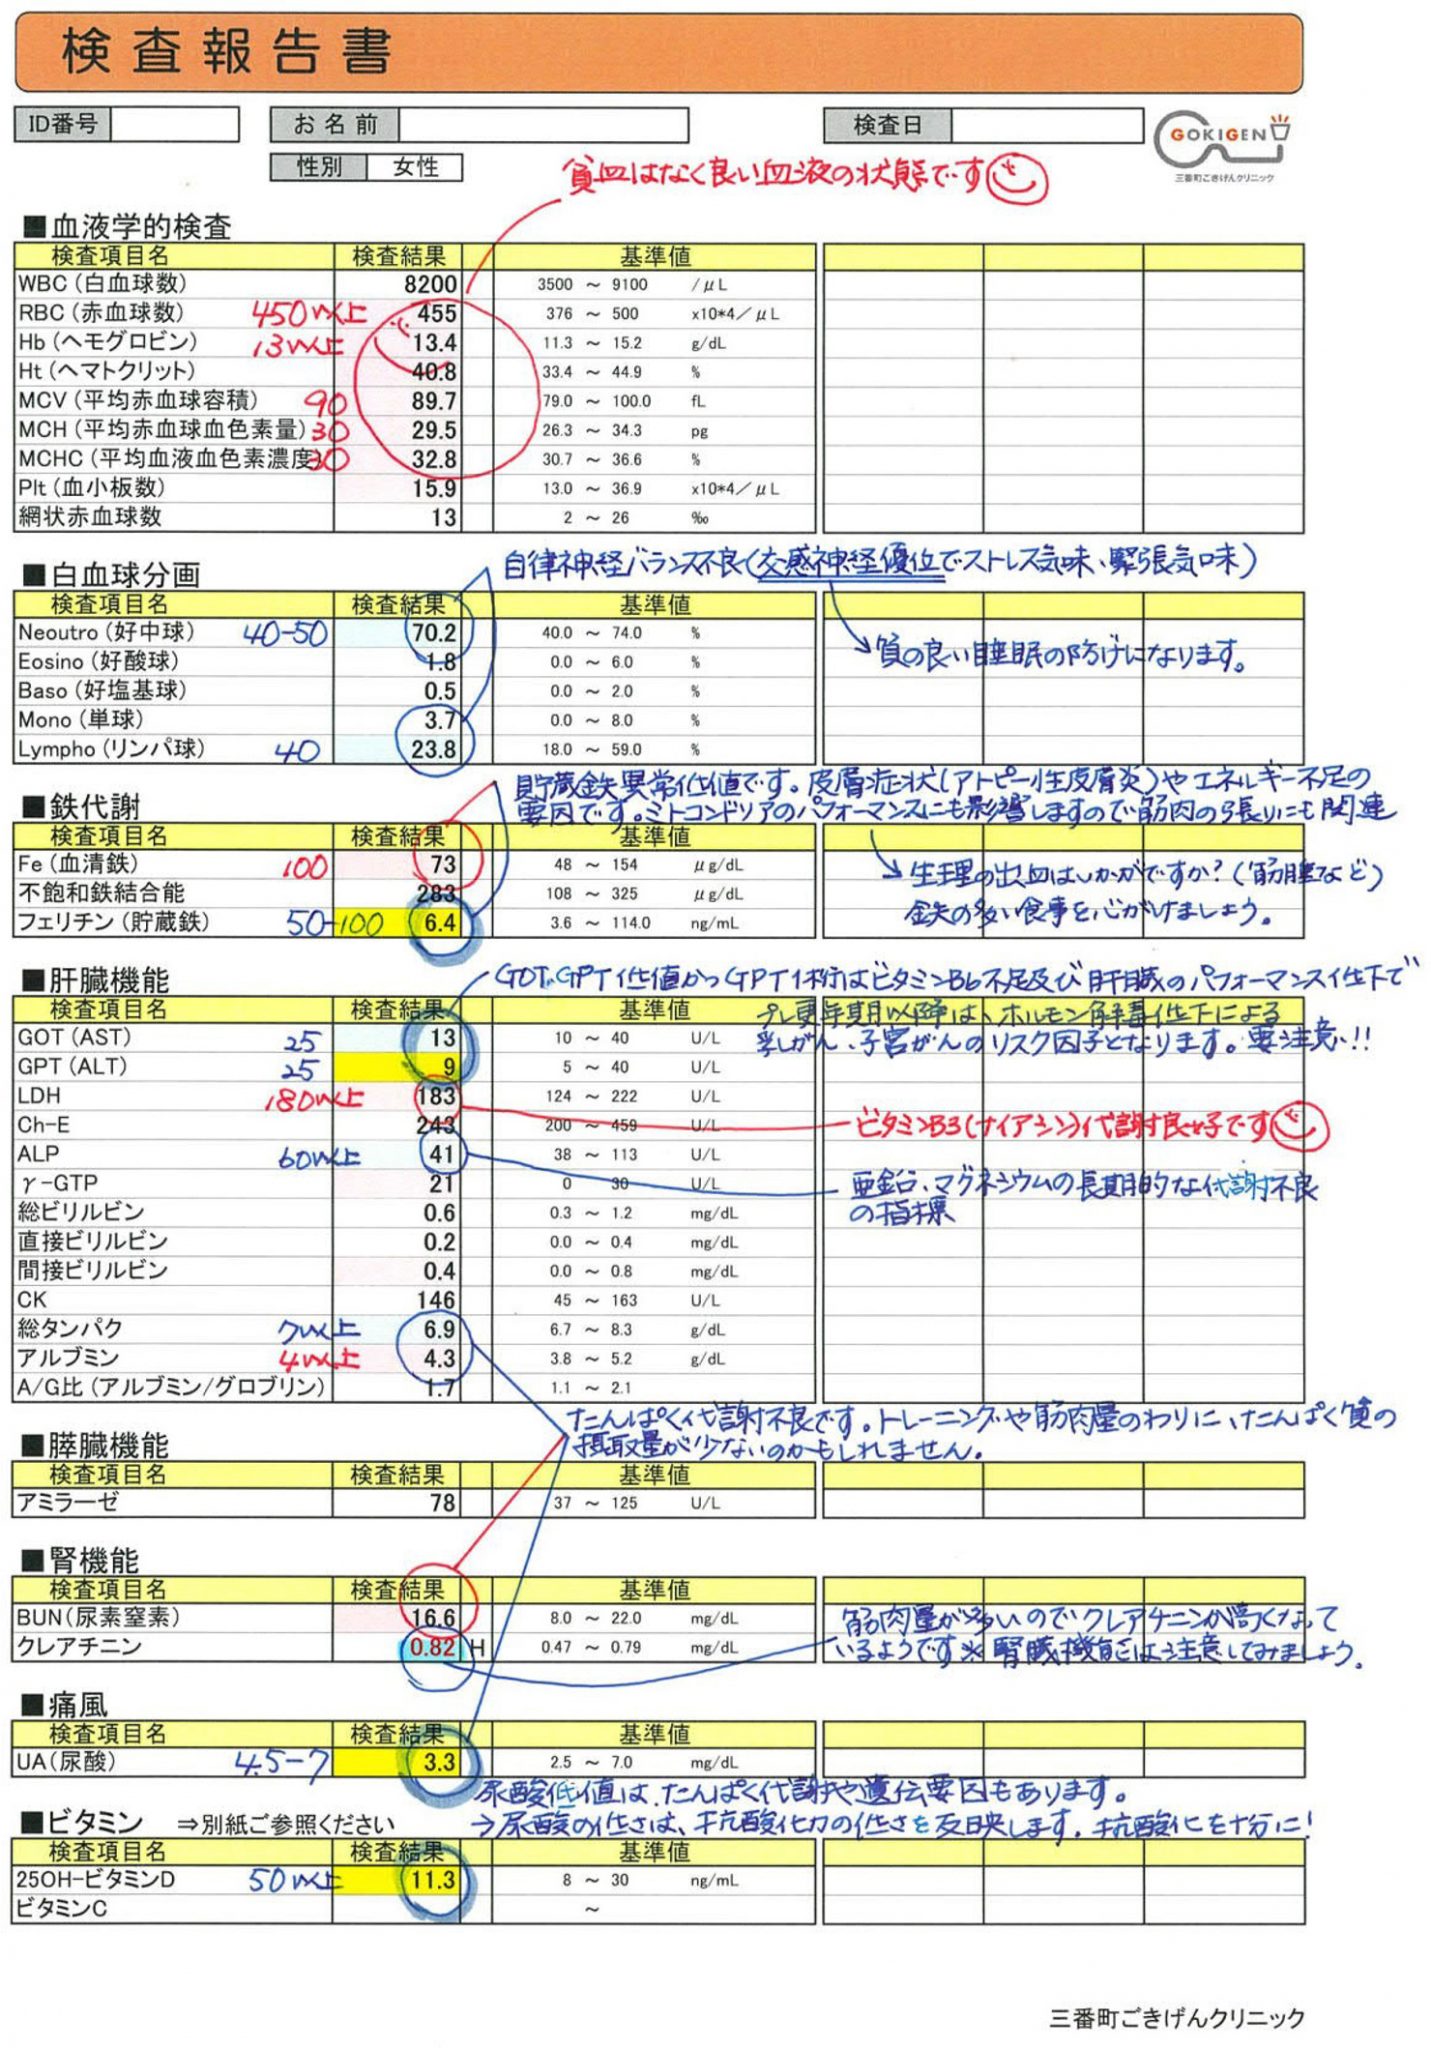 検査報告書
ID番号 お名前 検査日 GOKIGEN
三番町ごきげんクリニック
性別 女性
貧血はなく良い血液の状態です
■血液学的検査
検査項目名 検査結果 基準値
WBC（白血球数） 8200 3500 ～ 9100 /μL
RBC（赤血球数） 450以上 455 376 ～ 500 x10*4／μL
Hb（ヘモグロビン） 13以上 13.4 11.3 ～ 15.2 g/dL
Ht（ヘマトクリット） 40.8 33.4 ～ 44.9 %
MCV（平均赤血球容積） 90 89.7 79.0 ～ 100.0 fL
MCH（平均赤血球血色素量） 30 29.5 26.3 ～ 34.3 pg
MCHC（平均血液血色素濃度） 30 32.8 30.7 ～ 36.6 %
Plt（血小板数） 15.9 13.0 ～ 36.9 x10*4／μL
網状赤血球数 13 2 ～ 26 ‰
自律神経バランス不良（交感神経優位でストレス気味、緊張気味）
■白血球分画
検査項目名 検査結果 基準値
Neoutro（好中球） 40-50 70.2 40.0 ～ 74.0 %
→質の良い睡眠の防げになります。
Eosino（好酸球） 1.8 0.0 ～ 6.0 %
Baso（好塩基球） 0.5 0.0 ～ 2.0 %
Mono（単球） 3.7 0.0 ～ 8.0 %
Lympho（リンパ球） 40 23.8 18.0 ～ 59.0 %
貯蔵鉄異常低値です。皮膚症状（アトピー性皮膚炎）やエネルギー不足の
要因です。ミトコンドリアのパフォーマンスにも影響しますので筋肉の張りにも関連
■鉄代謝
検査項目名 検査結果 基準値
Fe（血清鉄） 100 73 48 ～ 154 μg/dL
→生理の出血はいかがですか？（筋腫など）
不飽和鉄結合能 283 108 ～ 325 μg/dL
鉄の多い食事を心がけましょう。
フェリチン（貯蔵鉄） 50-100 6.4 3.6 ～ 114.0 ng/mL
■肝臓機能
GOT、GPT低値かつGPT優位はビタミンB6不足及び肝臓のパフォーマンス低下で
検査項目名 検査結果 基準値
プレ更年期以降は、ホルモン解毒低下による
乳がん、子宮がんのリスク因子となります。要注意！！
GOT（AST） 25 13 10 ～ 40 U/L
GPT（ALT） 25 9 5 ～ 40 U/L
LDH 180以上 183 124 ～ 222 U/L
ビタミンB3（ナイアシン）代謝良好です
Ch-E 243 200 ～ 459 U/L
ALP 60以上 41 38 ～ 113 U/L
亜鉛、マグネシウムの長期的な代謝不良
の指標
γ-GTP 21 0 30 U/L
総ビリルビン 0.6 0.3 ～ 1.2 mg/dL
直接ビリルビン 0.2 0.0 ～ 0.4 mg/dL
間接ビリルビン 0.4 0.0 ～ 0.8 mg/dL
CK 146 45 ～ 163 U/L
総タンパク 7以上 6.9 6.7 ～ 8.3 g/dL
アルブミン 4以上 4.3 3.8 ～ 5.2 g/dL
A/G比（アルブミン/グロブリン） 1.7 1.1 ～ 2.1
たんぱく代謝不良です。トレーニングや筋肉量のわりに、たんぱく質の
摂取量が少ないのかもしれません。
■膵臓機能
検査項目名 検査結果 基準値
アミラーゼ 78 37 ～ 125 U/L
■腎機能
検査項目名 検査結果 基準値
BUN（尿素窒素） 16.6 8.0 ～ 22.0 mg/dL
クレアチニン 0.82 H 0.47 ～ 0.79 mg/dL
筋肉量が多いのでクレアチニンが高くなって
いるようです※腎臓機能は注意してみましょう。
■痛風
検査項目名 検査結果 基準値
UA（尿酸） 4.5-7 3.3 2.5 ～ 7.0 mg/dL
尿酸低値は、たんぱく代謝や遺伝要因もあります。
→尿酸の低さは、抗酸化力の低さを反映します。抗酸化を十分に！
■ビタミン ⇒別紙ご参照ください
検査項目名 検査結果 基準値
25OH-ビタミンD 50以上 11.3 8 ～ 30 ng/mL
ビタミンC ～
三番町ごきげんクリニック